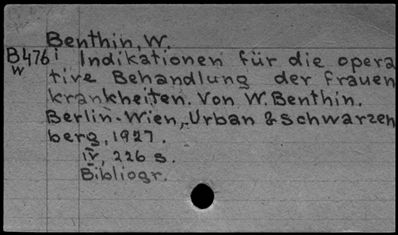 Benthin, W.
B476i Indikationen für die opera
w tive Behandlung der Frauen
krankheiten. Von W. Benthin.
Berlin-Wien, Urban & Schwarzen
berg, 1927.
IV, 226 s.
Bibliogr.